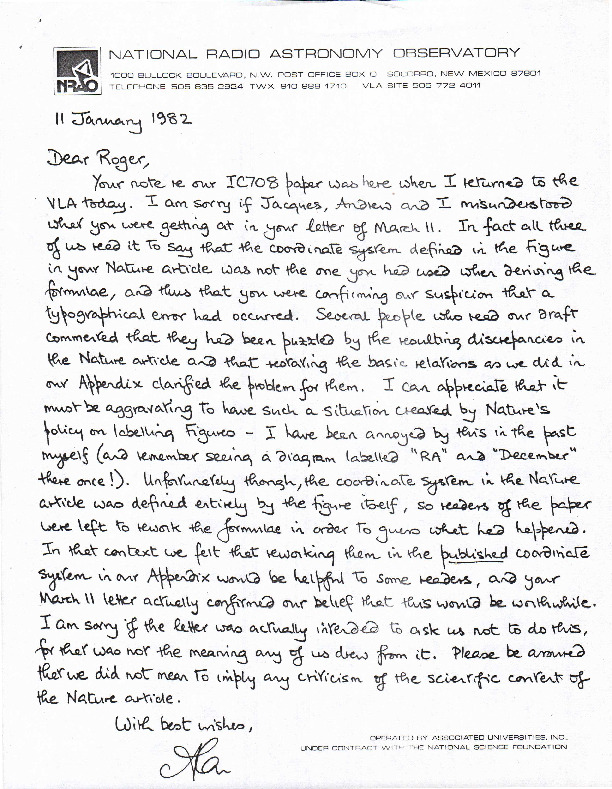 NRAO
NATIONAL RADIO ASTRONOMY OBSERVATORY
1000 BULLOCK BOULEVARD, N.W. POST OFFICE BOX O SOCORRO, NEW MEXICO 87801
TELEPHONE 505 835 2924 TWX 910 988 1710 VLA SITE 505 772 4011
11 January 1982
Dear Roger,
Your note re our IC708 paper was here when I returned to the
VLA today. I am sorry if Jacques, Andrew and I misunderstood
what you were getting at in your letter of March 11. In fact all three
of us read it to say that the coordinate system defined in the Figure
in your Nature article was not the one you had used when deriving the
formulae, and thus that you were confirming our suspicion that a
typographical error had occurred. Several people who read our draft
commented that they had been puzzled by the resulting discrepancies in
the Nature article and that restating the basic relations as we did in
our Appendix clarified the problem for them. I can appreciate that it
must be aggravating to have such a situation created by Nature's
policy on labelling Figures - I have been annoyed by this in the past
myself (and remember seeing a diagram labelled "RA" and "December"
there once!). Unfortunately though, the coordinate system in the Nature
article was defined entirely by the figure itself, so readers of the paper
were left to rework the formulae in order to guess what had happened.
In that context we felt that reworking them in the published coordinate
system in our Appendix would be helpful to some readers, and your
March 11 letter actually confirmed our belief that this would be worthwhile.
I am sorry if the letter was actually intended to ask us not to do this,
for that was not the meaning any of us drew from it. Please be assured
that we did not mean to imply any criticism of the scientific content of
the Nature article.
With best wishes,
Alan
OPERATED BY ASSOCIATED UNIVERSITIES, INC.
UNDER CONTRACT WITH THE NATIONAL SCIENCE FOUNDATION